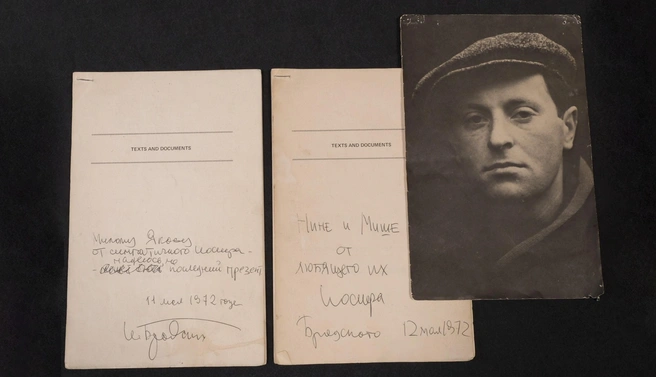 TEXTS AND DOCUMENTS
Милому Якову
от симпатичного Иосифа -
надеюсь но
- последний презент
11 мая 1972 года
И. Бродский
TEXTS AND DOCUMENTS
Нине и Мише
от
любящего их
Иосифа
Бродского 12 мая 1972